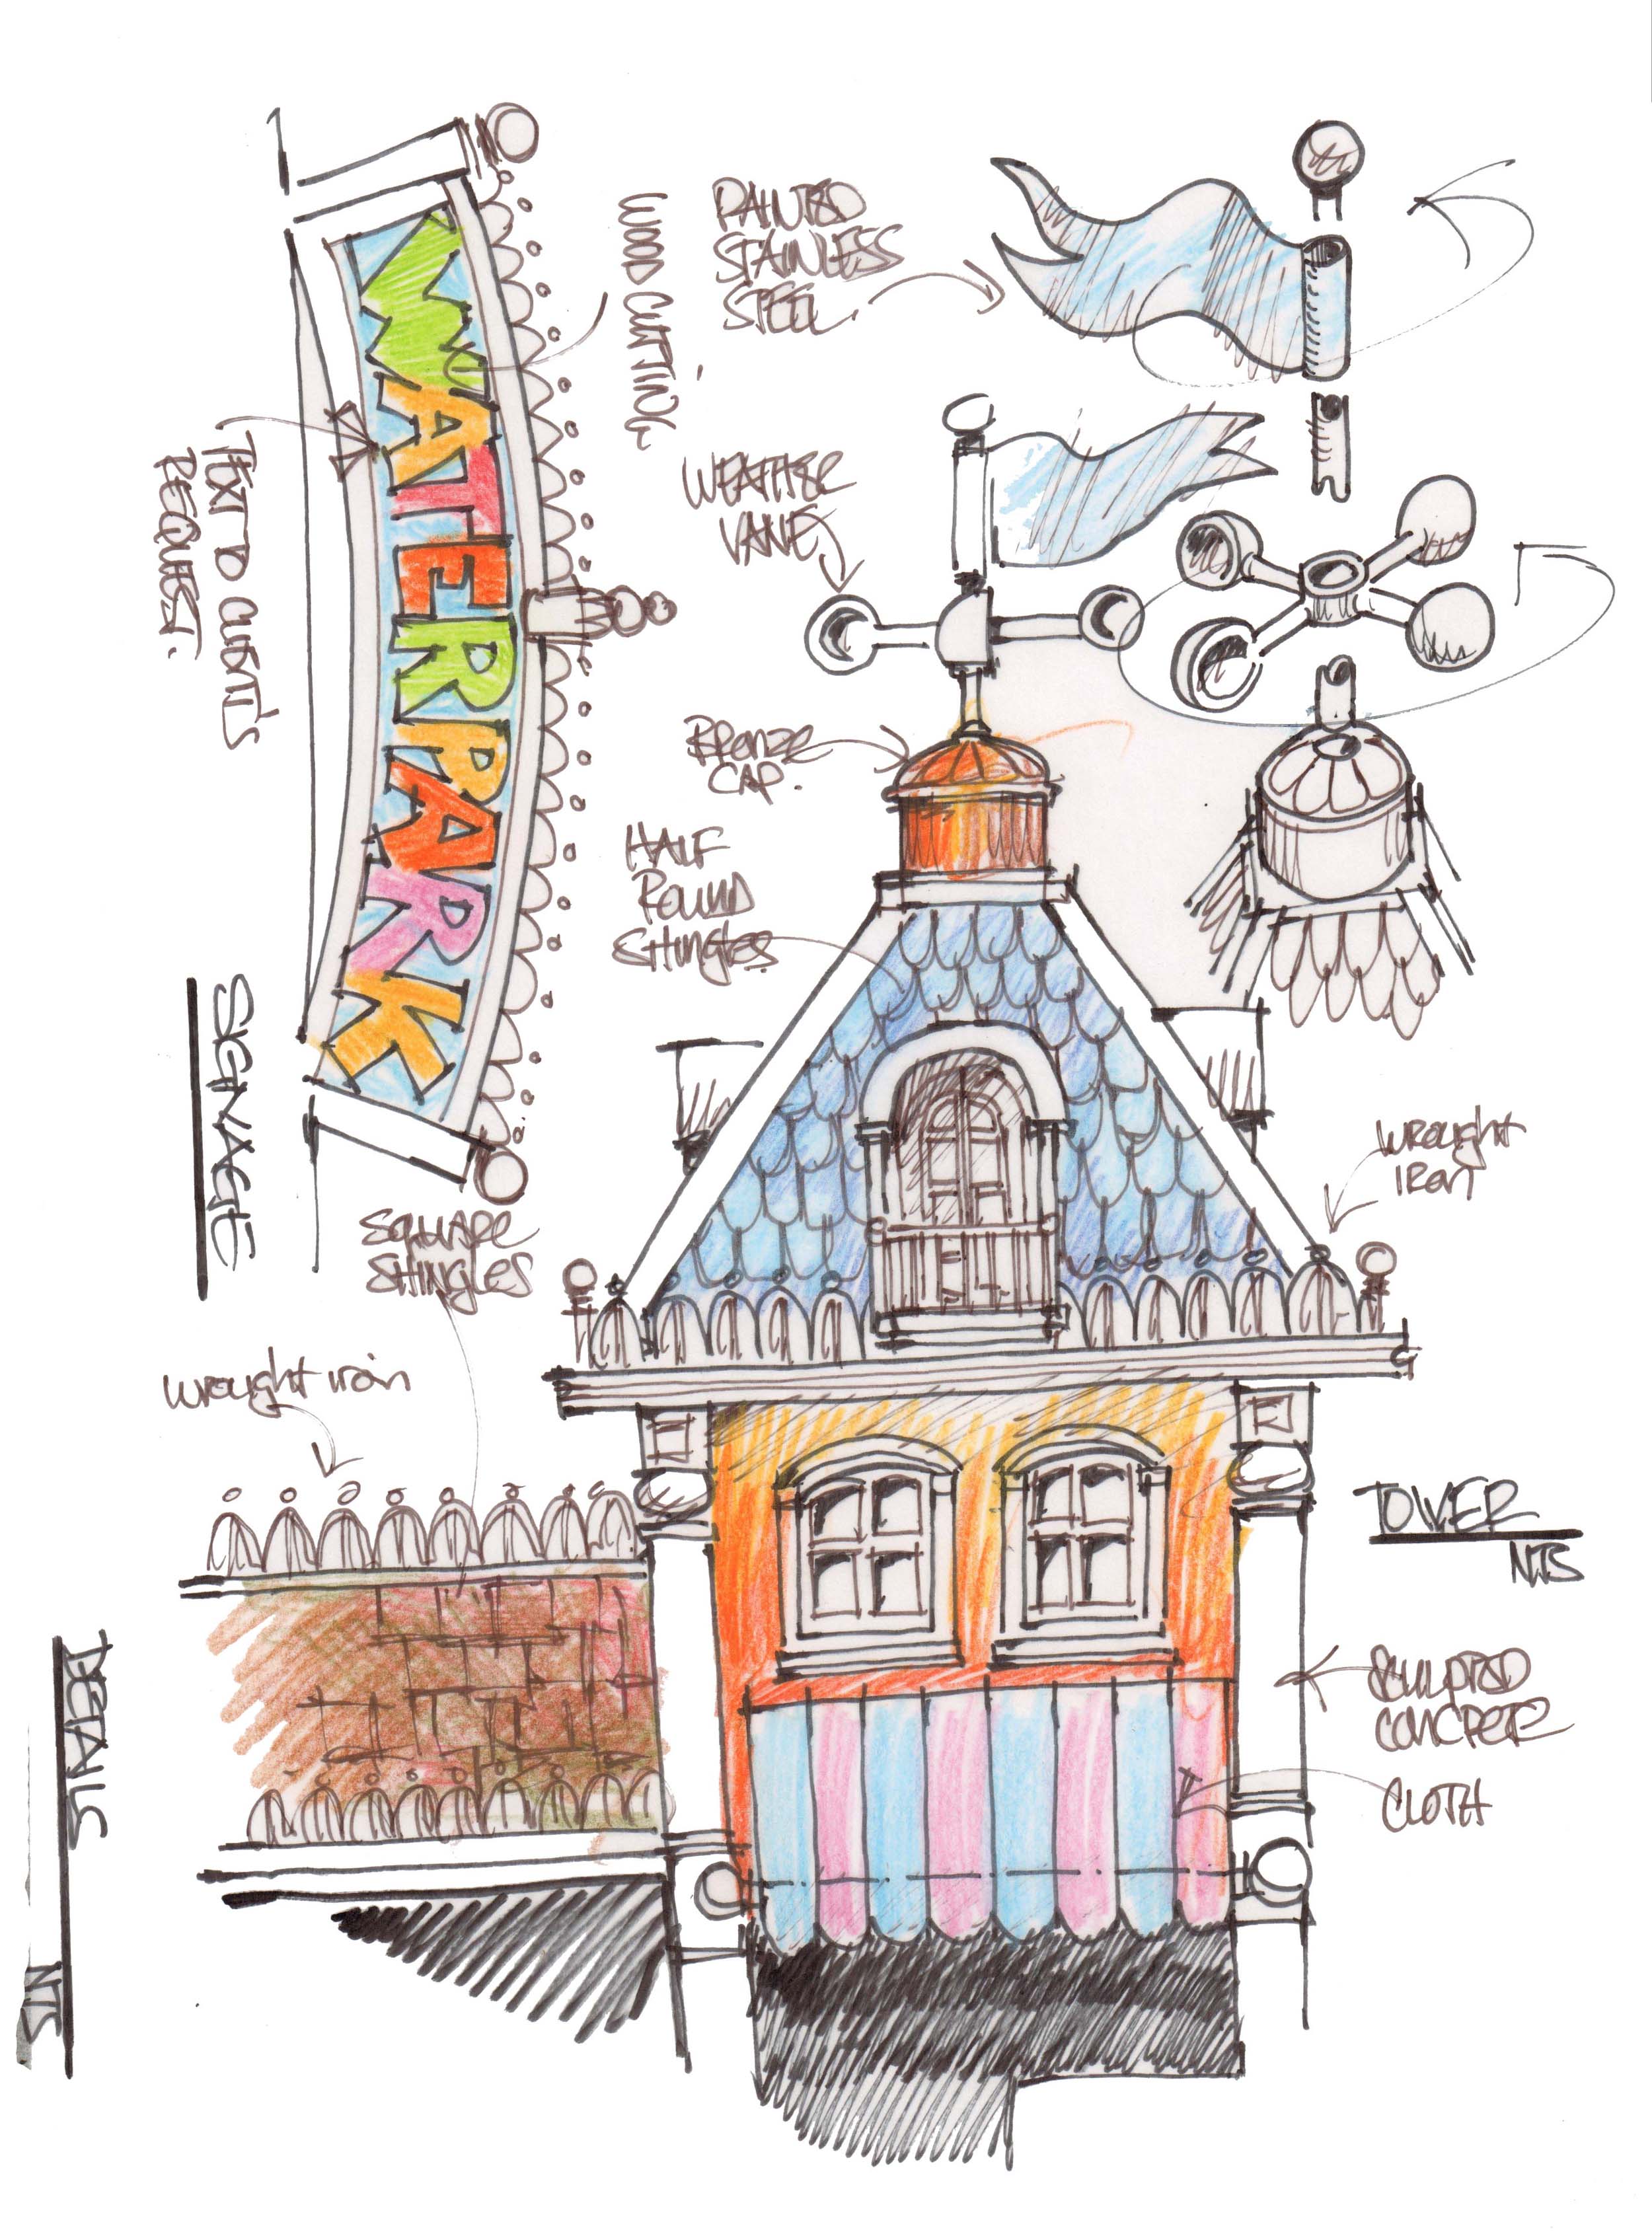 WATERPARK
WOOD CUTTING
TEXT TO CLIENT'S
REQUEST.
SIGNAGE
PAINTED
STAINLESS
STEEL.
WEATHER
VANE
Bronze
CAP.
HALF
ROUND
SHINGLES
SQUARE
SHINGLES
wrought iron
wrought
iron
TOWER
NTS
SCULPTED
CONCRETE
CLOTH
DETAILS
NTS